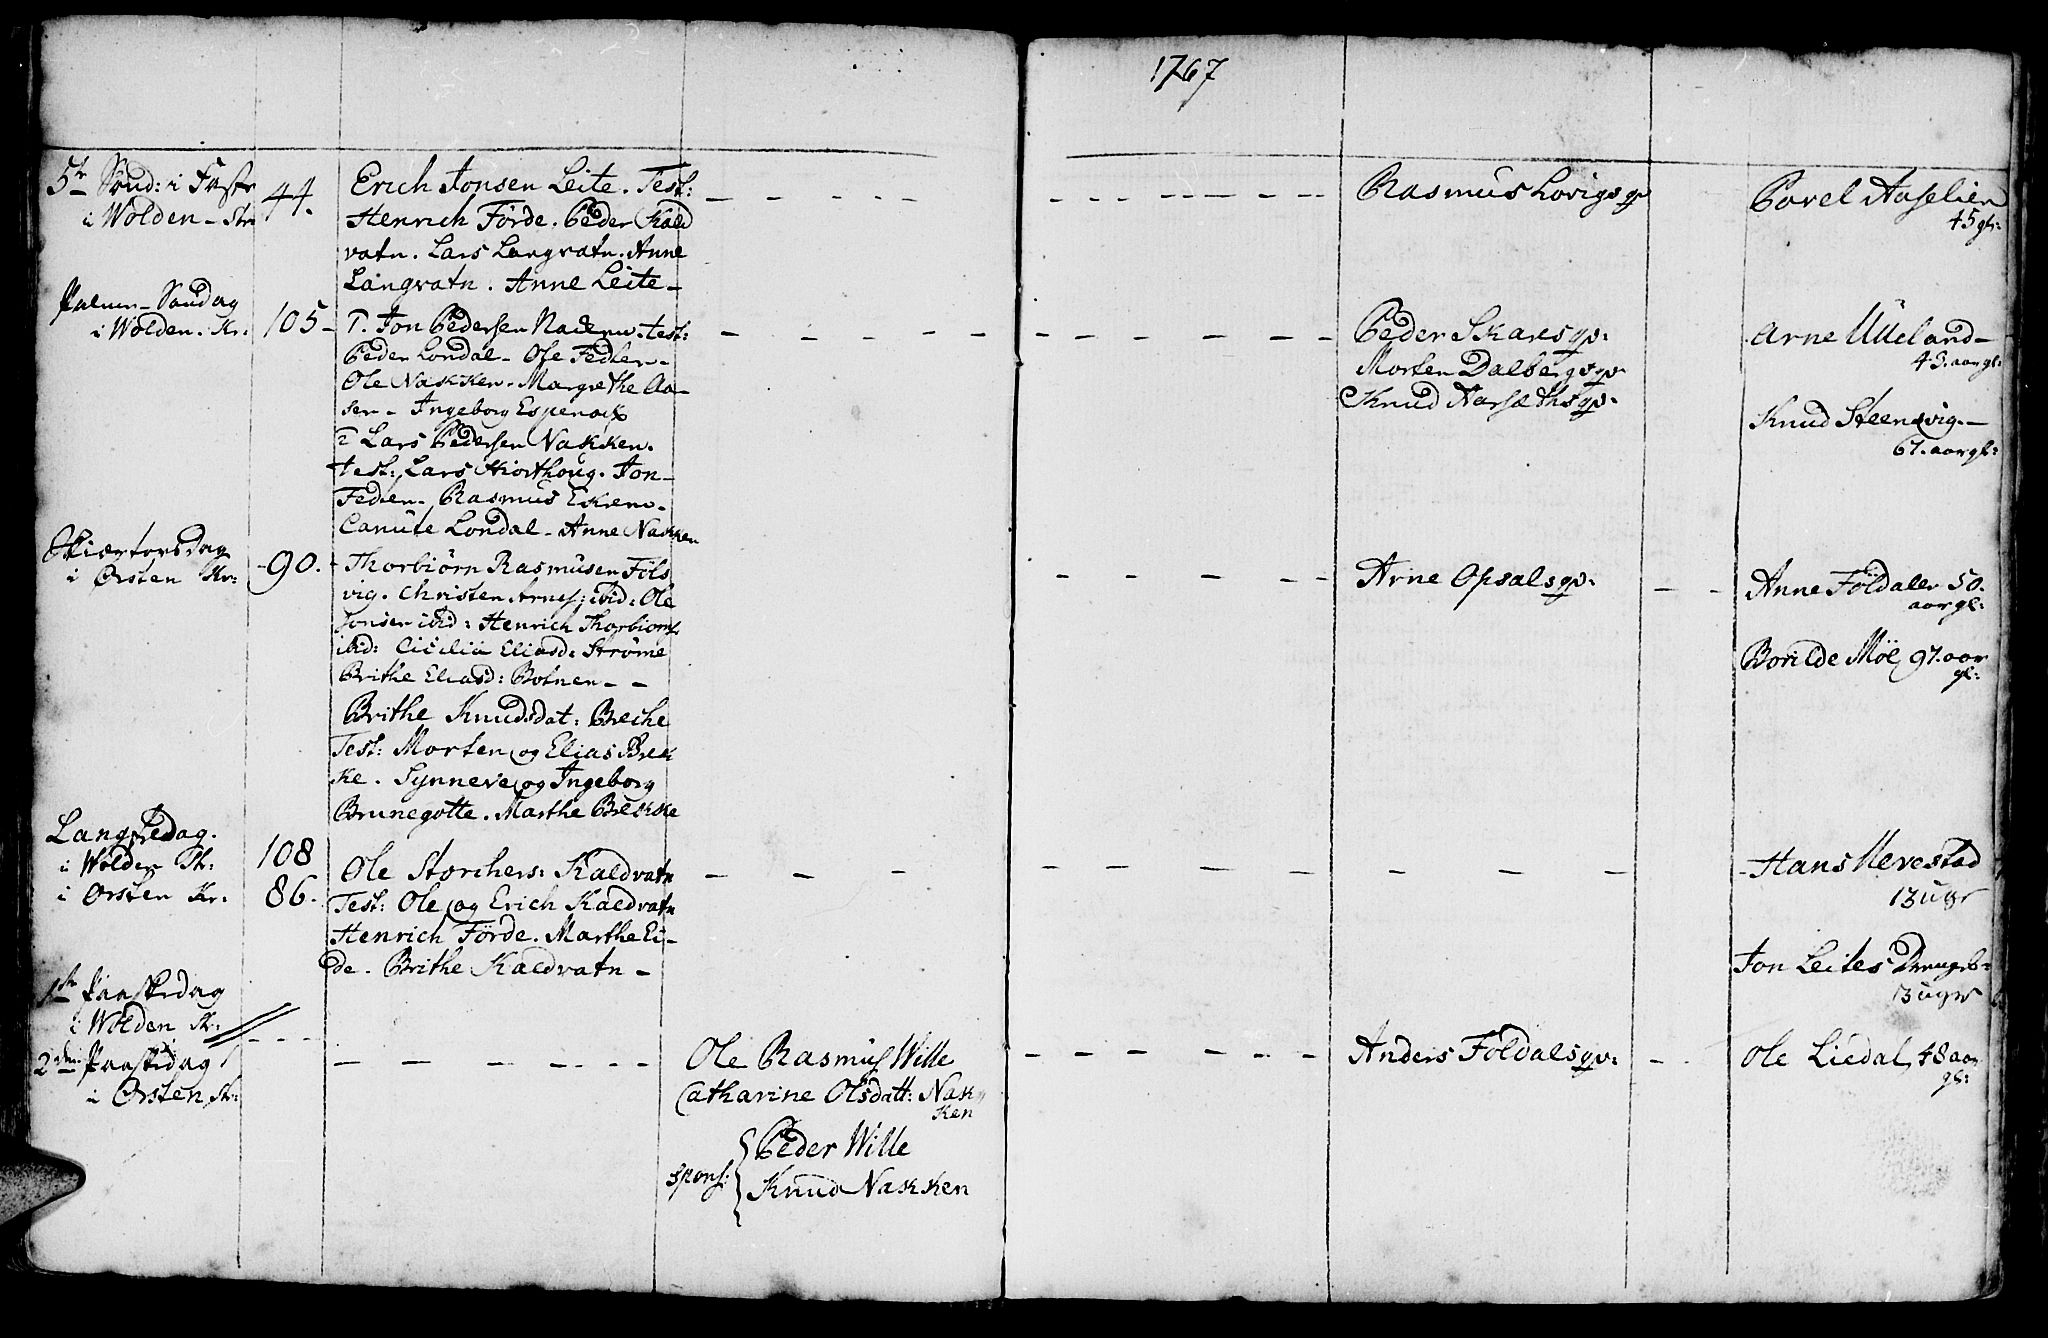 1767
5te Sönd: i Faste
i Wolden - Kr:
44.
Erich Jonsen Leite. Test:
Henrich Förde. Peder Kald
vatn. Lars Langvatn. Anne
Langvatn. Anne Leite -
Rasmus Lovigs qv
Povel Aaselien
45 gl:
Palme - Sondag
i Wolden. Kr:
105 -
1. Jon Pedersen Test:
Peder Londal - Ose Fedien -
Ole Nakken. Margrethe Aa-
sen - Ingeborg Espenace
2 Lars Pedersen Nakken.
test: Lars Hiorthoug. Jon
Fedien - Rasmus Ekrem -
Canute Londal - Anne Nakken
Peder Skars qv:
Morten Dalbergs qv
Knud Aarsæths qv:
Arne Uueland -
43. aar gl:
Knud Steensvig. -
67. aar gl:
Skiærtorsdag
i Orsten Kr:
- 90. -
Thorbiörn Rasmusen Föls
vig. Christen Arnes: ibid: Ole
Jonsen ibid: Henrich Thorbiorns
ibid: Cicilia Eliasd: Ströme
Brithe Eliasd: Botnen - -
Brithe Knudsdat: Breche
Test: Morten og Elias Brek
ke. Synneve og Ingeborg
Brunegotte. Marthe Brekke
Arne Opsals qv:
Anne Földalen 50.
aar gl:
Borilde Möe, 97. aar
gl:
Langfredag.
i Wolden Kr:
i Orsten Kr:
108
86.
Ole Storchers: Kaldvatn
Test: Ole og Erich Kaldvatn
Henrich Förde. Marthe Ei-
de. Brithe Kaldvatn -
- Hans Mevestad
13 uger
Jon Leites Drengeb:
13 uger
1ste Paaskedag
i Wolden Kr:
2den Paaskedag
i Orsten Kr:
Ole Rasmus Wille
Catharine Olsdatt: Nak
ken
spons:
Peder Wille
Knud Nakken
Anders Foldals qv:
Ole Liedal, 48 aar
gl: